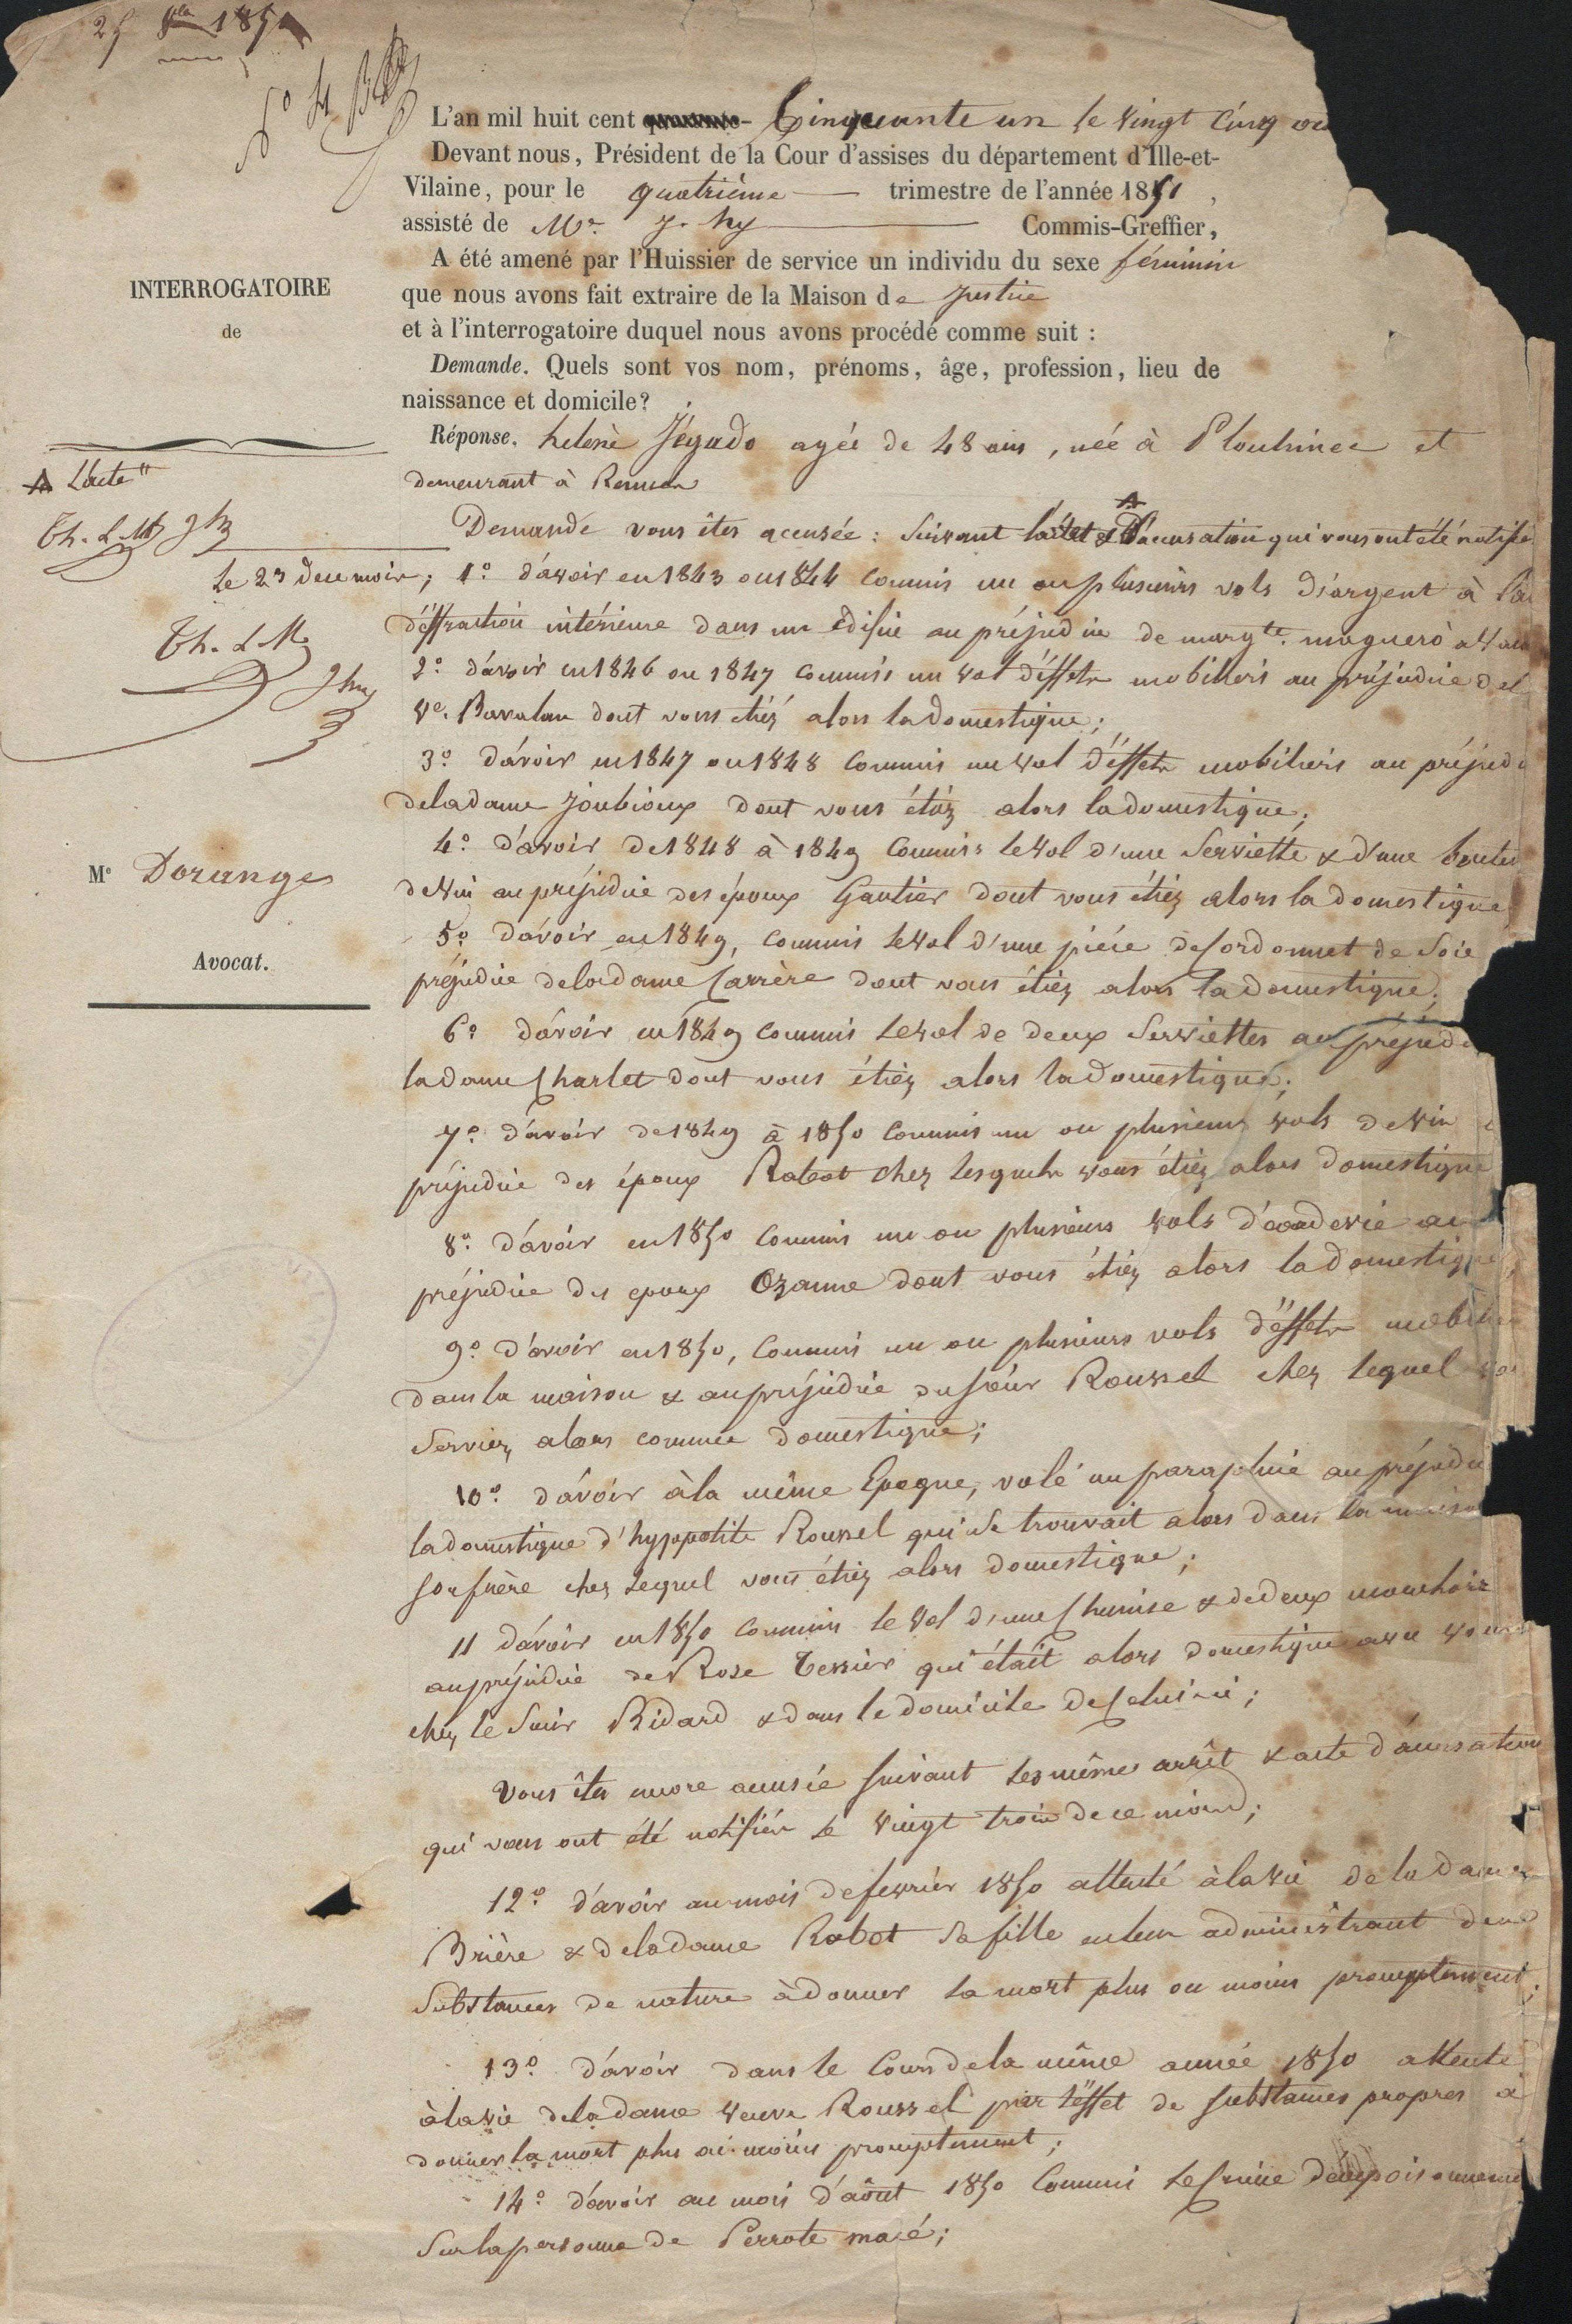 25 8bre 1851
L'an mil huit cent quarante- Cinquante un le vingt cinq oc
Devant nous, Président de la Cour d'assises du département d'Ille-et-
Vilaine, pour le quatrième trimestre de l'année 1851,
assisté de Mr. J. hy Commis-Greffier,
A été amené par l'Huissier de service un individu du sexe féminin
que nous avons fait extraire de la Maison de Justice
et à l'interrogatoire duquel nous avons procédé comme suit :
Demande. Quels sont vos nom, prénoms, âge, profession, lieu de
naissance et domicile?
Réponse. helenè Jégado agée de 48 ans, née à Plouhinec et
demeurant à Rennes
INTERROGATOIRE
de
A L'acte
Th. L M
le 23 du ce mois;
Th. L M
Me Dorange
Avocat.
Demande vous êtes accusée : Suivant l'accusation qui vous ont été notifié
1º. d'avoir en 1843 ou 1844 commis un ou plusieurs vols d'argent à l'ai
d'éffraction intérieure dans un édifice au préjudice de margte. mogueró
2º. d'avoir en 1846 ou 1847 commis un vol d'éffets mobiliers au préjudice del
ve. Bavalan dont vous étiéz alors la domestique;
3º d'avoir en 1847 ou 1848 commis un vol d'éffets mobiliers au préjudi
de la dame Joubioux dont vous étiéz alors la domestique;
4º. d'avoir de 1848 à 1849 commis le vol d'une Serviette & d'une boutei
de vin au préjudice des époux Gautier dont vous étiez alors la domestique
5º. d'avoir en 1849, commis le vol d'une pièce de Cordonnet de Soie
préjudice de la dame Carrère dont vous étiez alors la domestique;
6º d'avoir en 1849 commis le vol de deux Serviettes au préjudi
la dame Charlet dont vous étiéz alors la domestique;
7º. d'avoir de 1849 à 1850 commis un ou plusieurs vols de vin
préjudice des époux Rabot chez lesquels vous étiez alors domestique
8º. d'avoir en 1850 commis un ou plusieurs vols d'eaudevie au
préjudice des epoux Ozanne dont vous étiéz alors la domestique,
9º. d'avoir en 1850, commis un ou plusieurs vols d'éffets mobilie
dans la maison & au préjudice du Sieur Roussel chez lequel vo
Serviez alors comme domestique;
10º. d'avoir à la même Epoque, volé un parapluie au préjudi
la domestique d'hyppolite Roussel qui Se trouvait alors dans la maiso
Son frère chez Lequel vous étiéz alors domestique;
11 d'avoir en 1850 commis le Vol d'une Chemise & de deux mouchoirs
au préjudice de Rose Tessier qui était alors domestique avec vous
chez le Sieur Bidard & dans le domicile de Celui-ci;
Vous êtes encore accusée Suivant Les même arrêt & acte d'accusation
qui vous ont été notifiés le vingt trois de ce mois;
12º. d'avoir au mois de fevrier 1850 attenté à la vie de la dame
Brière & de la dame Rabot Sa fille en leur administrant des
Substances de nature à donner la mort plus ou moins promptement;
13º. d'avoir dans le Cours de la même année 1850 attenté
à la vie de la dame veuve Roussel par l'éffet de Substances propres à
donner la mort plus ou moins promptement;
14º. d'avoir au mois d'août 1850 Commis le Crime d'empoisonneme
Sur la personne de Perrote macé;